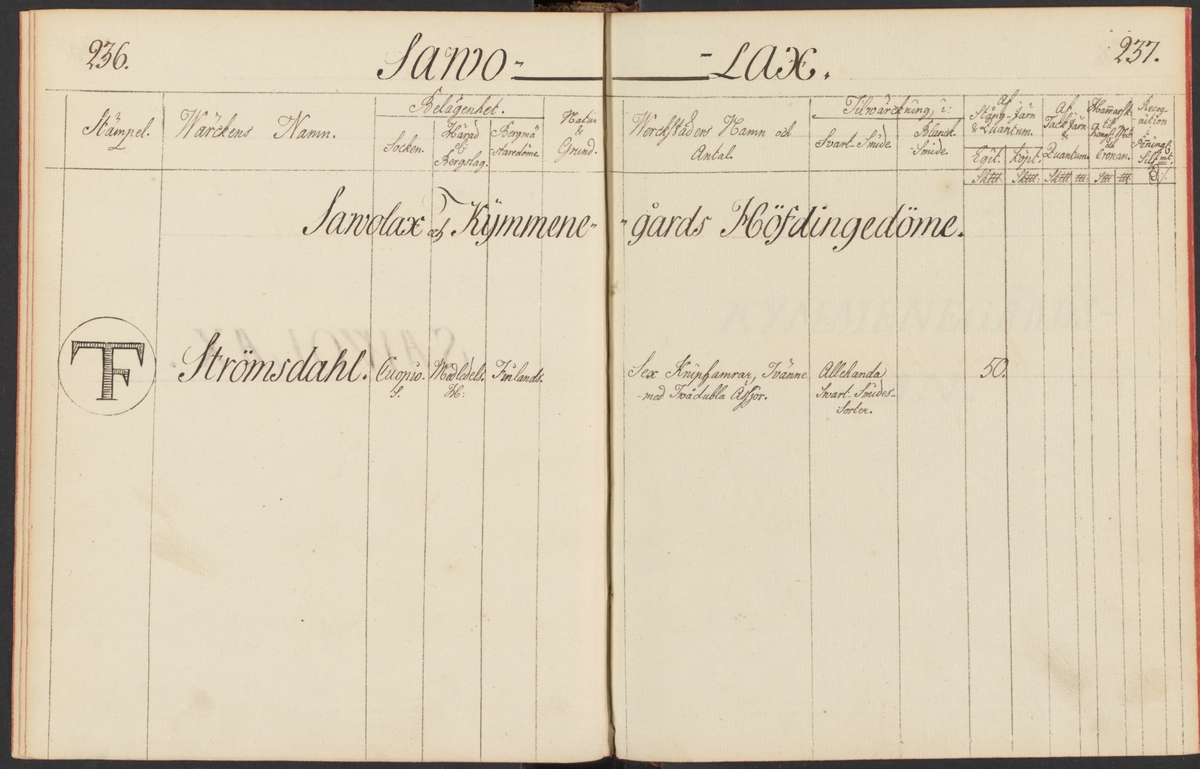 236.
Sawo- -LAX.
237.
Stämpel.
Wärckens Namn.
Belägenhet.
Socken.
Härad
el
Bergslag.
Bergmä
staredöme.
Natur
&
Grund.
Werckstädens Namn och
Antal.
Tilwärckning, i:
Svart-Smide
Blanck-
Smide.
Af
Stång-Järn
& Quantum.
Eget.
köpt.
Af
Tack Järn
&
Quantum.
Hamarsk.
till
Cronan.
Sawolax och Kymmene- -gårds Höfdingedöme.
TF
Strömsdahl.
Cuopio-
S.
Medledels.
H:
Finlands.
Sex Kniphamrar, Tvänne
-med Två dubla Äßjor.
Allehanda
Svart-Smides-
Sorter.
50.